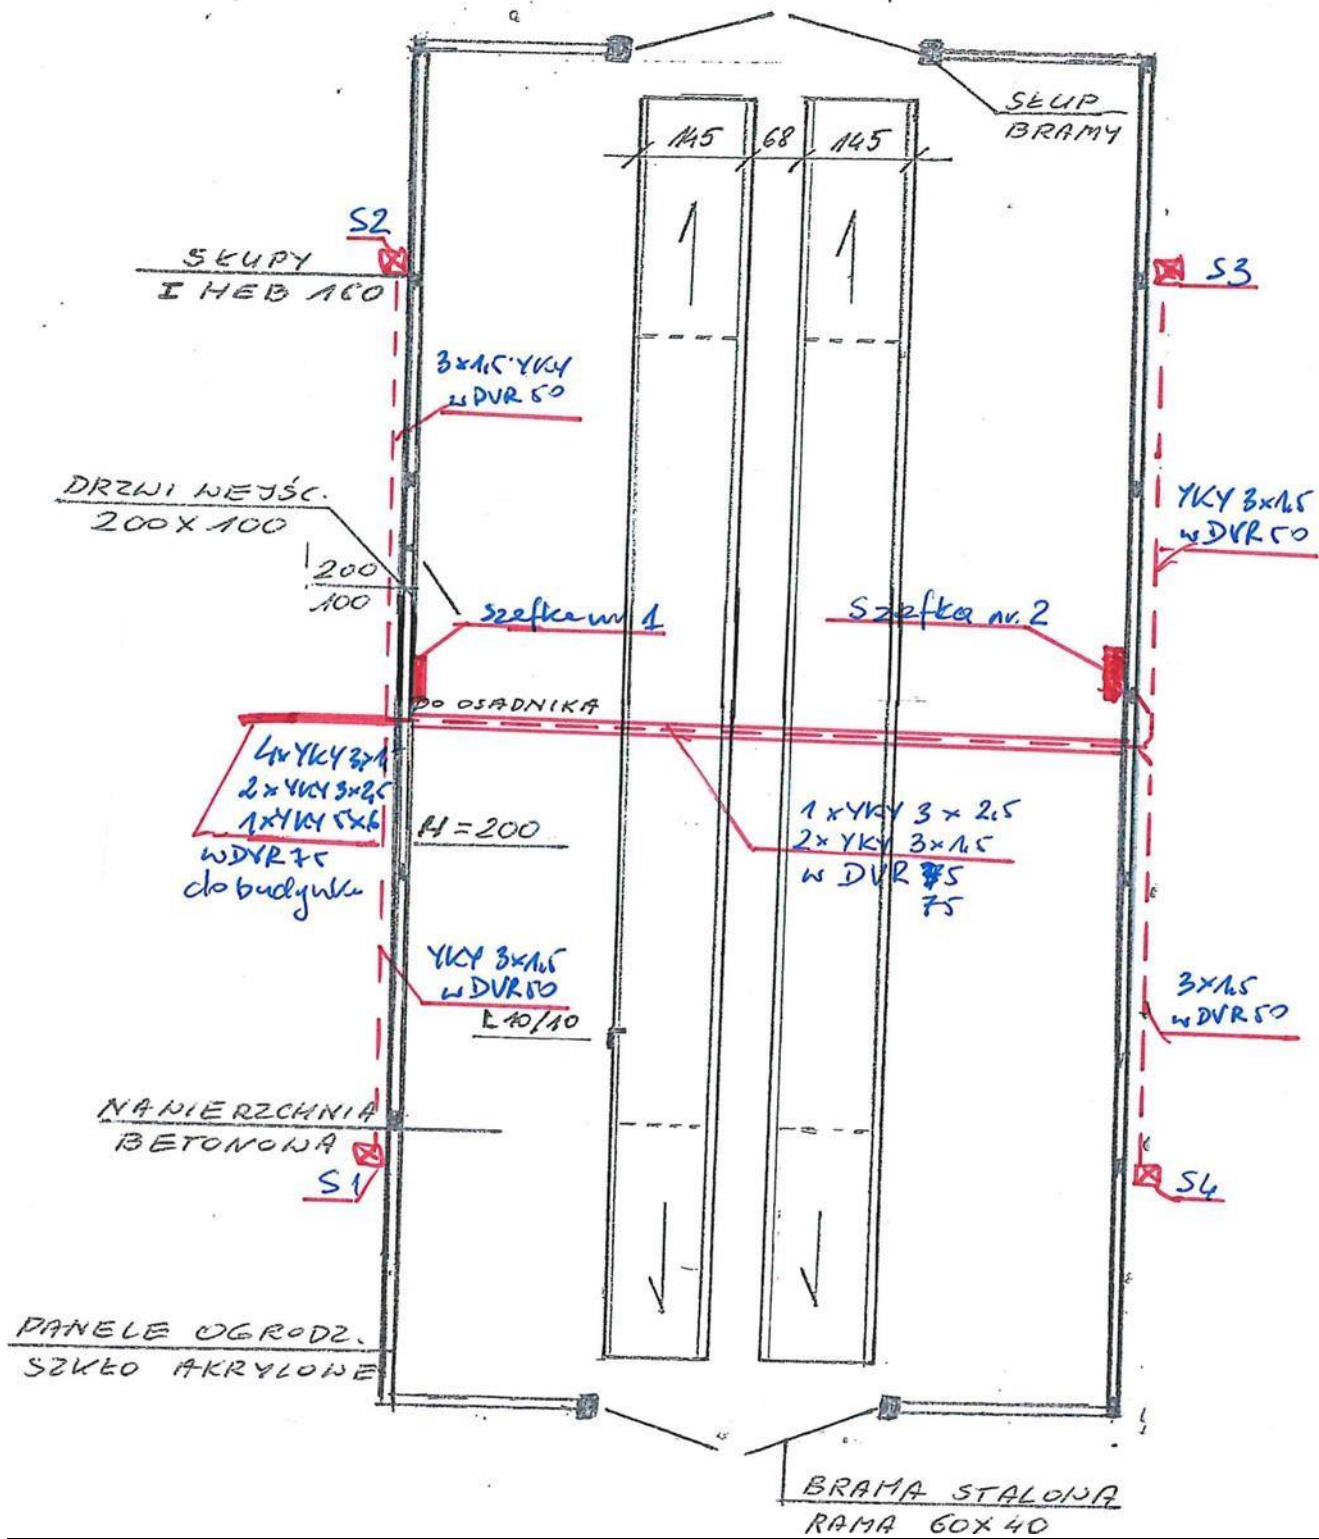 SŁUP
BRAMY
145 68 145
S2
SŁUPY
I HEB 160
S3
3x1,5 YKY
w DVR 50
DRZWI WEJŚC.
200 X 100
YKY 3x1,5
w DVR 50
200
100
szafka nr 1
Szafka nr. 2
DO OSADNIKA
4x YKY 3x1
2 x YKY 3x2,5
1x YKY 5x6
w DVR 75
do budynku
H = 200
1 x YKY 3 x 2,5
2x YKY 3x1,5
w DVR 75
75
YKY 3x1,5
w DVR 50
L 10/10
3x1,5
w DVR 50
NAWIERZCHNIA
BETONOWA
S1
S4
PANELE OGRODZ.
SZKŁO AKRYLOWE
BRAMA STALOWA
RAMA 60X40